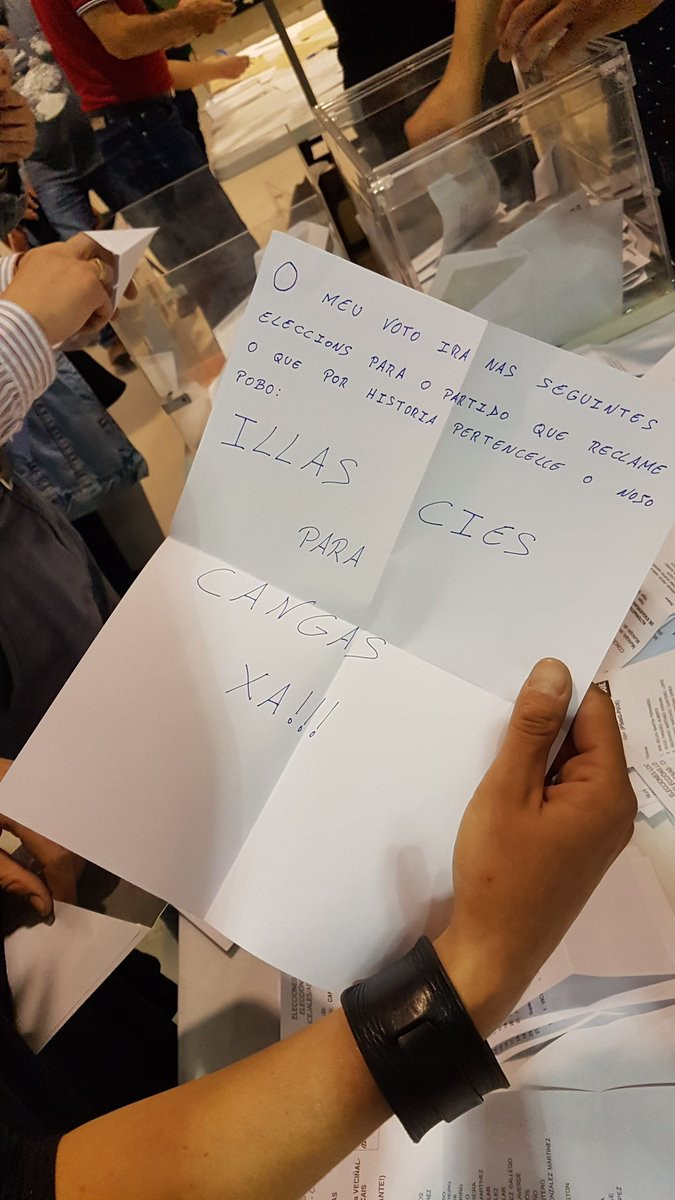 O MEU VOTO IRA NAS SEGUINTES
ELECCIONS PARA O PARTIDO QUE RECLAME
O QUE POR HISTORIA PERTENCELLE O NOSO
POBO:
ILLAS
CIES
PARA
CANGAS
XA!!!